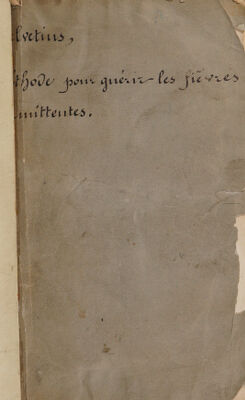 lvetius,
thode pour guérir les fièvres
mittentes.